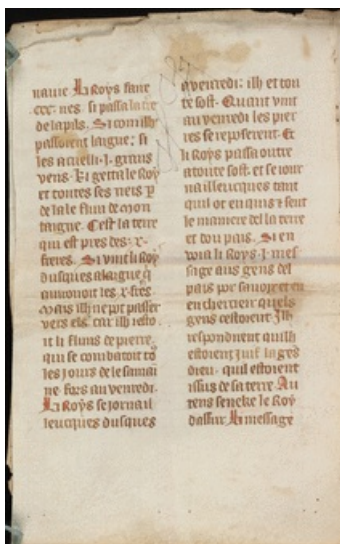 naire Li Roys faire
ccc· nes· si passa la
de lapis. Si com ilh
passoient laigue; si
les acuelli·j·grans
vens· ki getta le Roy
et toutes ses neis p
de la le flun de mon
taigue. Cest la terre
qui est pres des·x·
freres. Si vint li Roy
dusques alaigue q
auironoit les·x·fres
Mais ilh ne pot passer
vers els car ilh
it li fluns de pierre
qui se combatoit to
les jours de le semai
ne· fors au venredi·
Li Roys sejorna il
leucques dusques
a venredi: ilh et tou
te sost· Quant vint
au venredi les pier
res se reposerent· Et
li Roys passa outre
atoute sost· et se iour
na illeucques tant
quil or enquis & seut
le maniere del la terre
et dou pais. Si en
voia li Roys·j·mes
sage aus gens del
pais por sauoir et
encherchier quels
gens cestoient Ilh
respondirent quilh
estoient juif la ges
dieu· quil estoient
issus de sa terre Au
tens seneke le Roy
dassur Li message